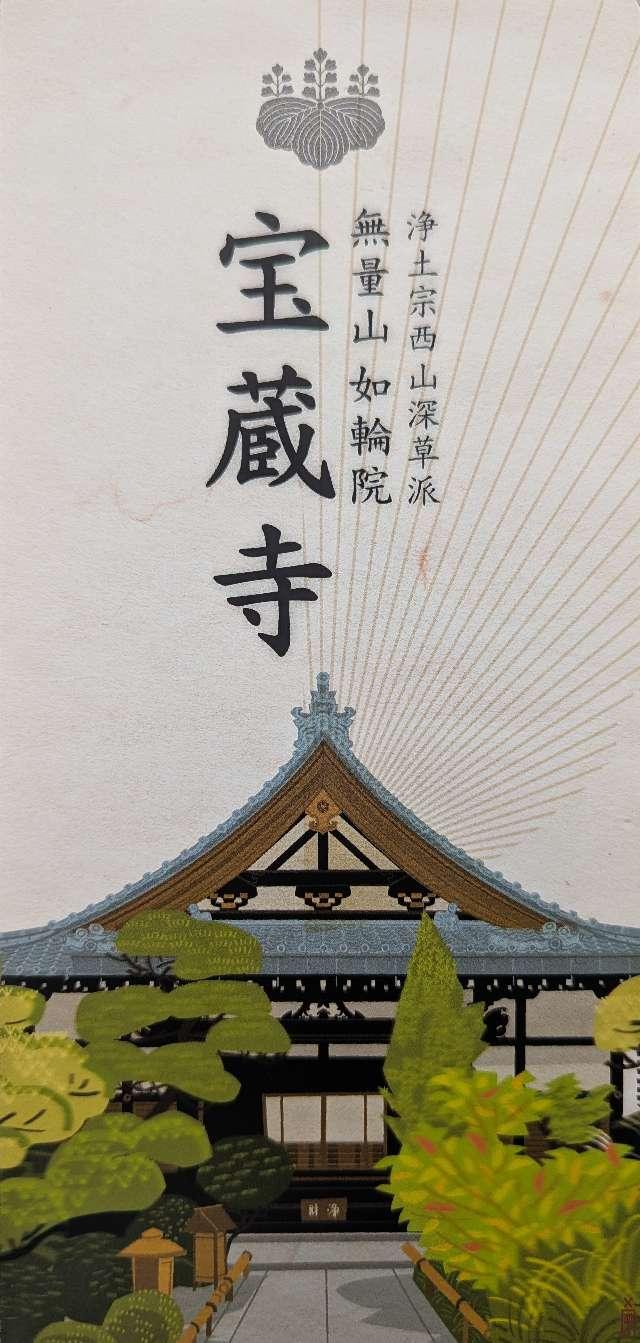 浄土宗西山深草派
無量山如輪院
宝蔵寺
浄財